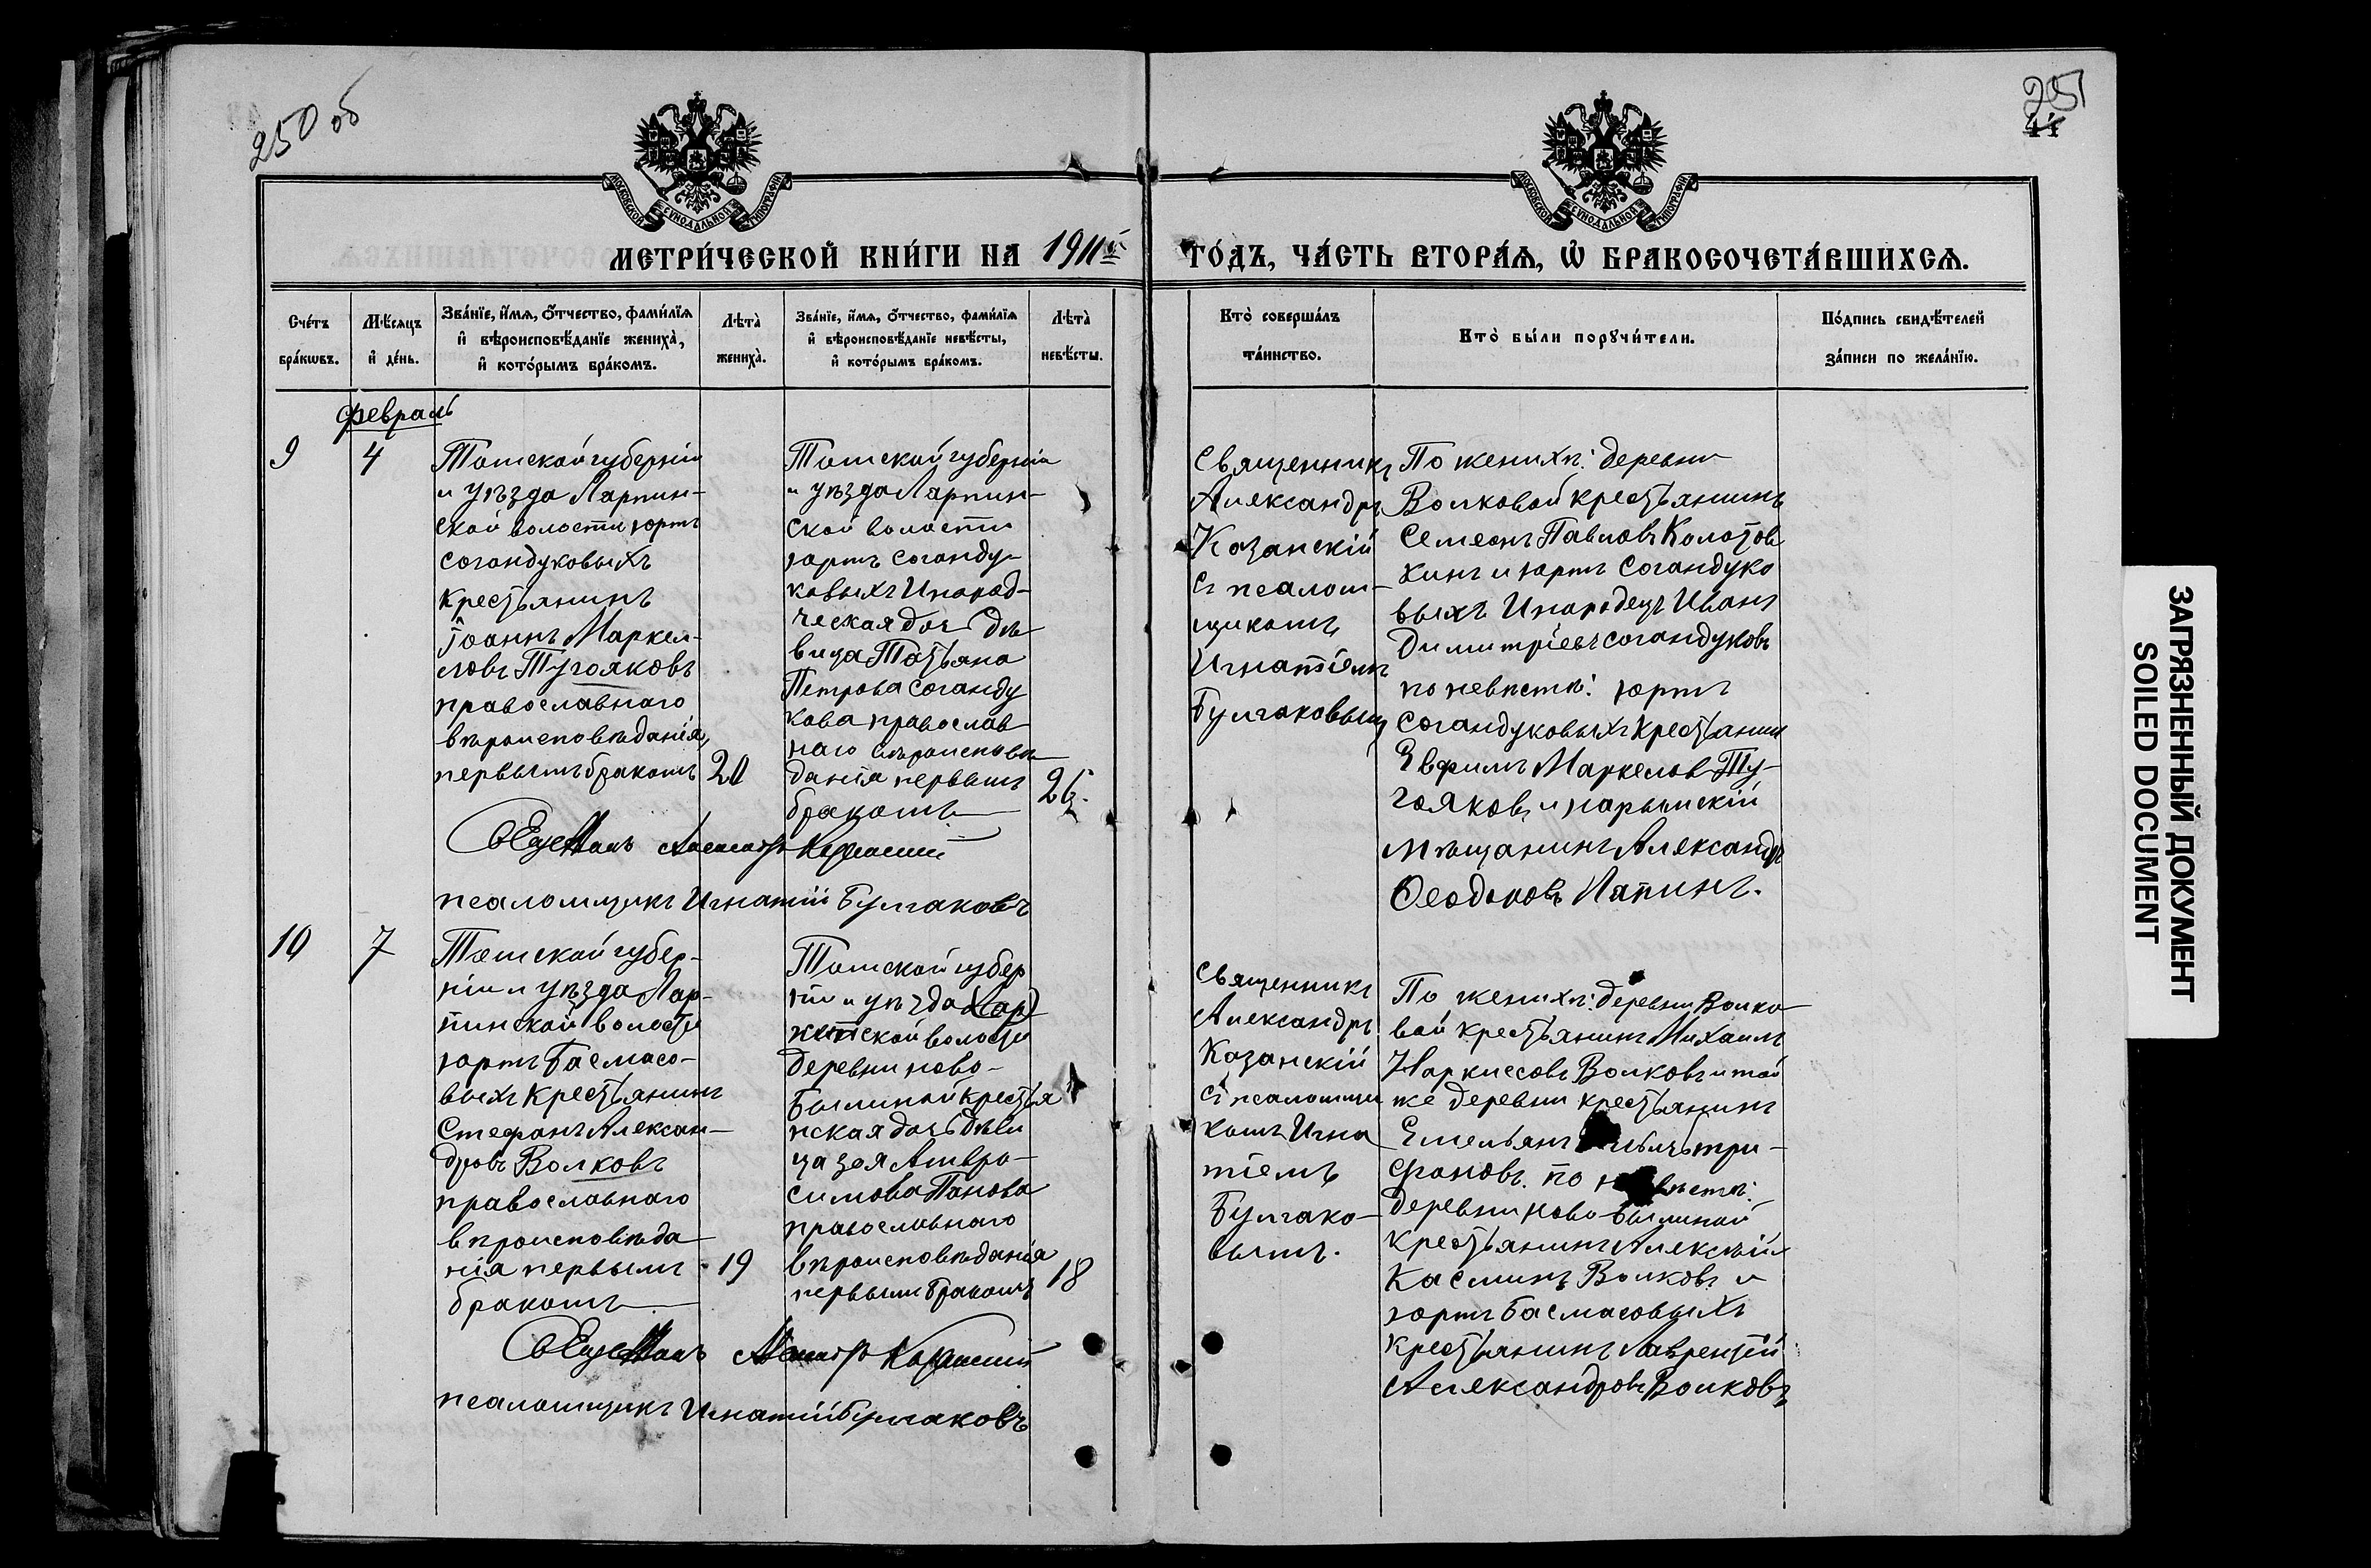 250 об
251
44
МОСКОВСКОЙ СѴНОДАЛЬНОЙ ТИПОГРАФІИ
МОСКОВСКОЙ СѴНОДАЛЬНОЙ ТИПОГРАФІИ
МЕТРИ́ЧЕСКОЙ КНИ́ГИ НА 1911й
ГО́ДЪ, ЧА́СТЬ ВТОРА́Ѧ, Ѡ҆ БРАКОСОЧЕТА́ВШИХСѦ.
Сче́тъ
бра́кѡвъ.
Мѣ́сяцъ
и҆ де́нь.
Зва́нїе, и҆́мѧ, ѻ҆́тчество, фами́лїѧ
и҆ вѣроисповѣ́данїе жениха̀,
и҆ кото́рымъ бра́комъ.
Лѣта̀
жениха̀.
Зва́нїе, и҆́мѧ, ѻ҆́тчество, фами́лїѧ
и҆ вѣроисповѣ́данїе невѣ́сты,
и҆ кото́рымъ бра́комъ.
Лѣта̀
невѣ́сты.
Кто̀ соверша́лъ
та́инство.
Кто̀ бы́ли порꙋчи́тели.
По́дпись свидѣ́телей
за́писи по жела́нїю.
Февраль
9
4
Томской губерніи
и уѣзда Ларпин-
ской волости юртъ
Согандуковыхъ
Крестьянинъ
Іоаннъ Маркел-
ловъ Тугояковъ
православнаго
вѣроисповѣданія,
первымъ бракомъ
20
Томской губерніи
и уѣзда Ларпин-
ской волости
юртъ Соганду-
ковыхъ Инород-
ческая дочь дѣ
вица Татьяна
Петрова Соганду
кова православ
наго вѣроисповѣ
данія первымъ
бракомъ
Священникъ
Александръ
Казанскій
съ псалом-
щикомъ
Игнатіемъ
Булгаковымъ
По женихѣ: деревни
Волковой крестьянинъ
Семеонъ Павловъ Колотов
кинъ и юртъ Согандуко
выхъ Инородецъ Иванъ
Димитріевъ Согандуковъ
по невѣстѣ: юртъ
Согандуковыхъ Крестьянин
Евфимъ Маркелов Ту-
гояковъ и нарымскій
мѣщанинъ Александръ
Ѳеодоровъ Лапинъ.
Священникъ Александръ Казанскій
псаломщикъ Игнатій Булгаковъ
10
7
Томской губер-
ніи и уѣзда Лар-
пинской волости
юртъ Басмасо-
выхъ Крестьянинъ
Стефанъ Алексан-
дровъ Волковъ
православнаго
вѣроисповѣда
нія первымъ
бракомъ
19
Томской губер
ніи и уѣзда Лар
пинской волости
деревни ново-
Былиной крестья
нская дочь дѣви
ца Зоя Амвро-
симова Панова
православнаго
вѣроисповѣданія
первымъ бракомъ
18
Священникъ
Александръ
Казанскій
съ псаломщи
комъ Игна
тіемъ
Булгако-
вымъ.
По женихѣ: деревни Волко
вой крестьянинъ Михаилъ
Наркисовъ Волковъ и той
же деревни крестьянинъ
Емельянъ три-
фановъ. по невѣстѣ:
деревни ново-Былиной
крестьянинъ Алексѣй
Касминъ Волковъ и
юртъ Басмасовыхъ
Крестьянинъ Лаврентій
Александровъ Волковъ
Священникъ Александръ Казанскій
псаломщикъ Игнатій Булгаковъ
ЗАГРЯЗНЕННЫЙ ДОКУМЕНТ
SOILED DOCUMENT